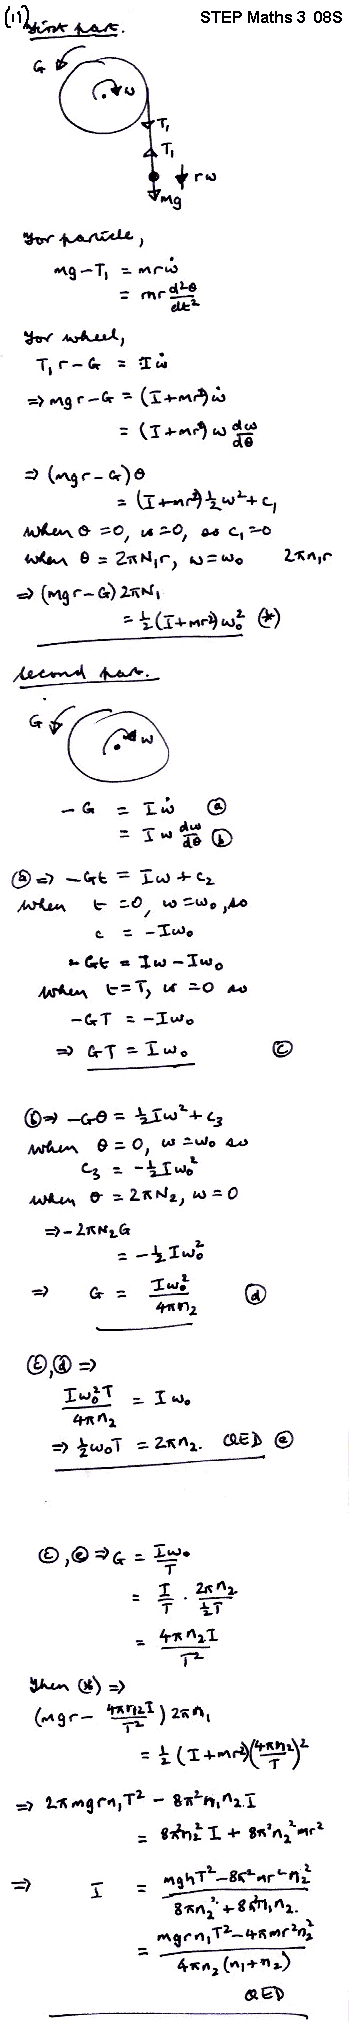 (11)
STEP Maths 3 08S
First part.
G
ω
T₁
T₁
rω
mg
For particle,
mg - T₁ = mrω̇
= mr d²θ/dt²
For wheel,
T₁r - G = Iω̇
⇒ mgr - G = (I + mr²)ω̇
= (I + mr²) ω dω/dθ
⇒ (mgr - G)θ
= (I + mr²) ½ω² + c₁
when θ = 0, ω = 0, so c₁ = 0
when θ = 2πN₁r, ω = ω₀ 2πn₁r
⇒ (mgr - G) 2πN₁
= ½(I + mr²)ω₀² (*)
Second part.
G
ω
-G = Iω̇ ⓐ
= Iω dω/dθ ⓑ
ⓐ ⇒ -Gt = Iω + c₂
when t = 0, ω = ω₀, so
c = -Iω₀
-Gt = Iω - Iω₀
when t = T, ω = 0 so
-GT = -Iω₀
⇒ GT = Iω₀ ⓒ
ⓑ ⇒ -Gθ = ½Iω² + c₃
when θ = 0, ω = ω₀ so
c₃ = -½Iω₀²
when θ = 2πN₂, ω = 0
⇒ -2πN₂G
= -½Iω₀²
⇒ G = Iω₀²/4πn₂ ⓓ
ⓒ, ⓓ ⇒
Iω₀²T/4πn₂ = Iω₀
⇒ ½ω₀T = 2πn₂. QED ⓔ
ⓒ, ⓔ ⇒ G = Iω₀/T
= I/T · 2πn₂/½T
= 4πn₂I/T²
Then (*) ⇒
(mgr - 4πn₂I/T²) 2πn₁
= ½(I + mr²)(4πn₂/T)²
⇒ 2πmgrn₁T² - 8π²n₁n₂I
= 8π²n₂²I + 8π²n₂²mr²
⇒ I = mghT² - 8π²mr²n₂²/8πn₂² + 8π²n₁n₂.
= mgrn₁T² - 4πmr²n₂²/4πn₂(n₁ + n₂)
QED